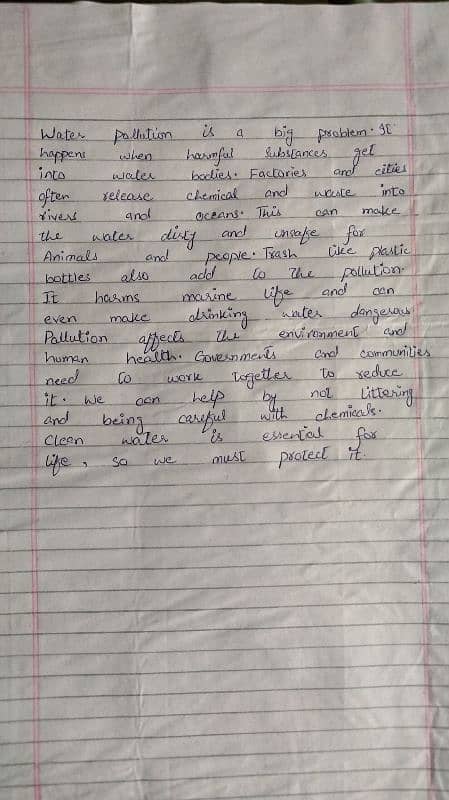 Water pollution is a big problem. It
happens when harmful substances get
into water bodies. Factories and cities
often release chemical and waste into
rivers and oceans. This can make
the water dirty and unsafe for
Animals and people. Trash like plastic
bottles also add to the pollution.
It harms marine life and can
even make drinking water dangerous
Pollution affects the environment and
human health. Governments and communities
need to work together to reduce
it. We can help by not littering
and being careful with chemicals.
Clean water is essential for
life, so we must protect it.